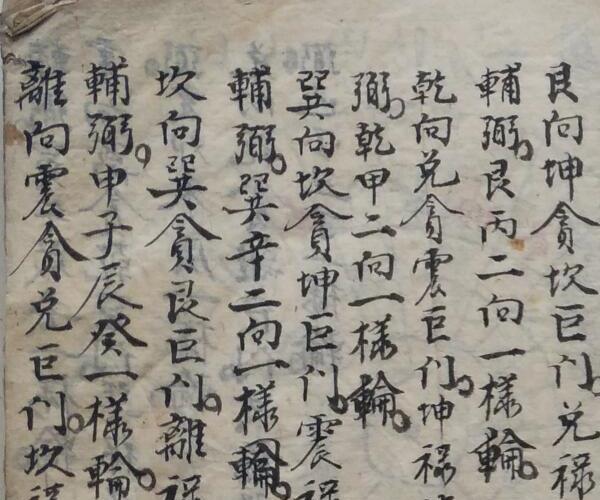 艮向坤貪坎巨门。兑禄
輔弼。艮丙二向一樣輪。
乾向兑貪震巨门。坤禄
弼。乾甲二向一樣輪。
巽向坎貪坤巨门。震禄
輔弼。巽辛二向一樣輪。
坎向巽貪艮巨门。離禄
輔弼。申子辰癸一樣輪。
離向震貪兑巨门。坎禄